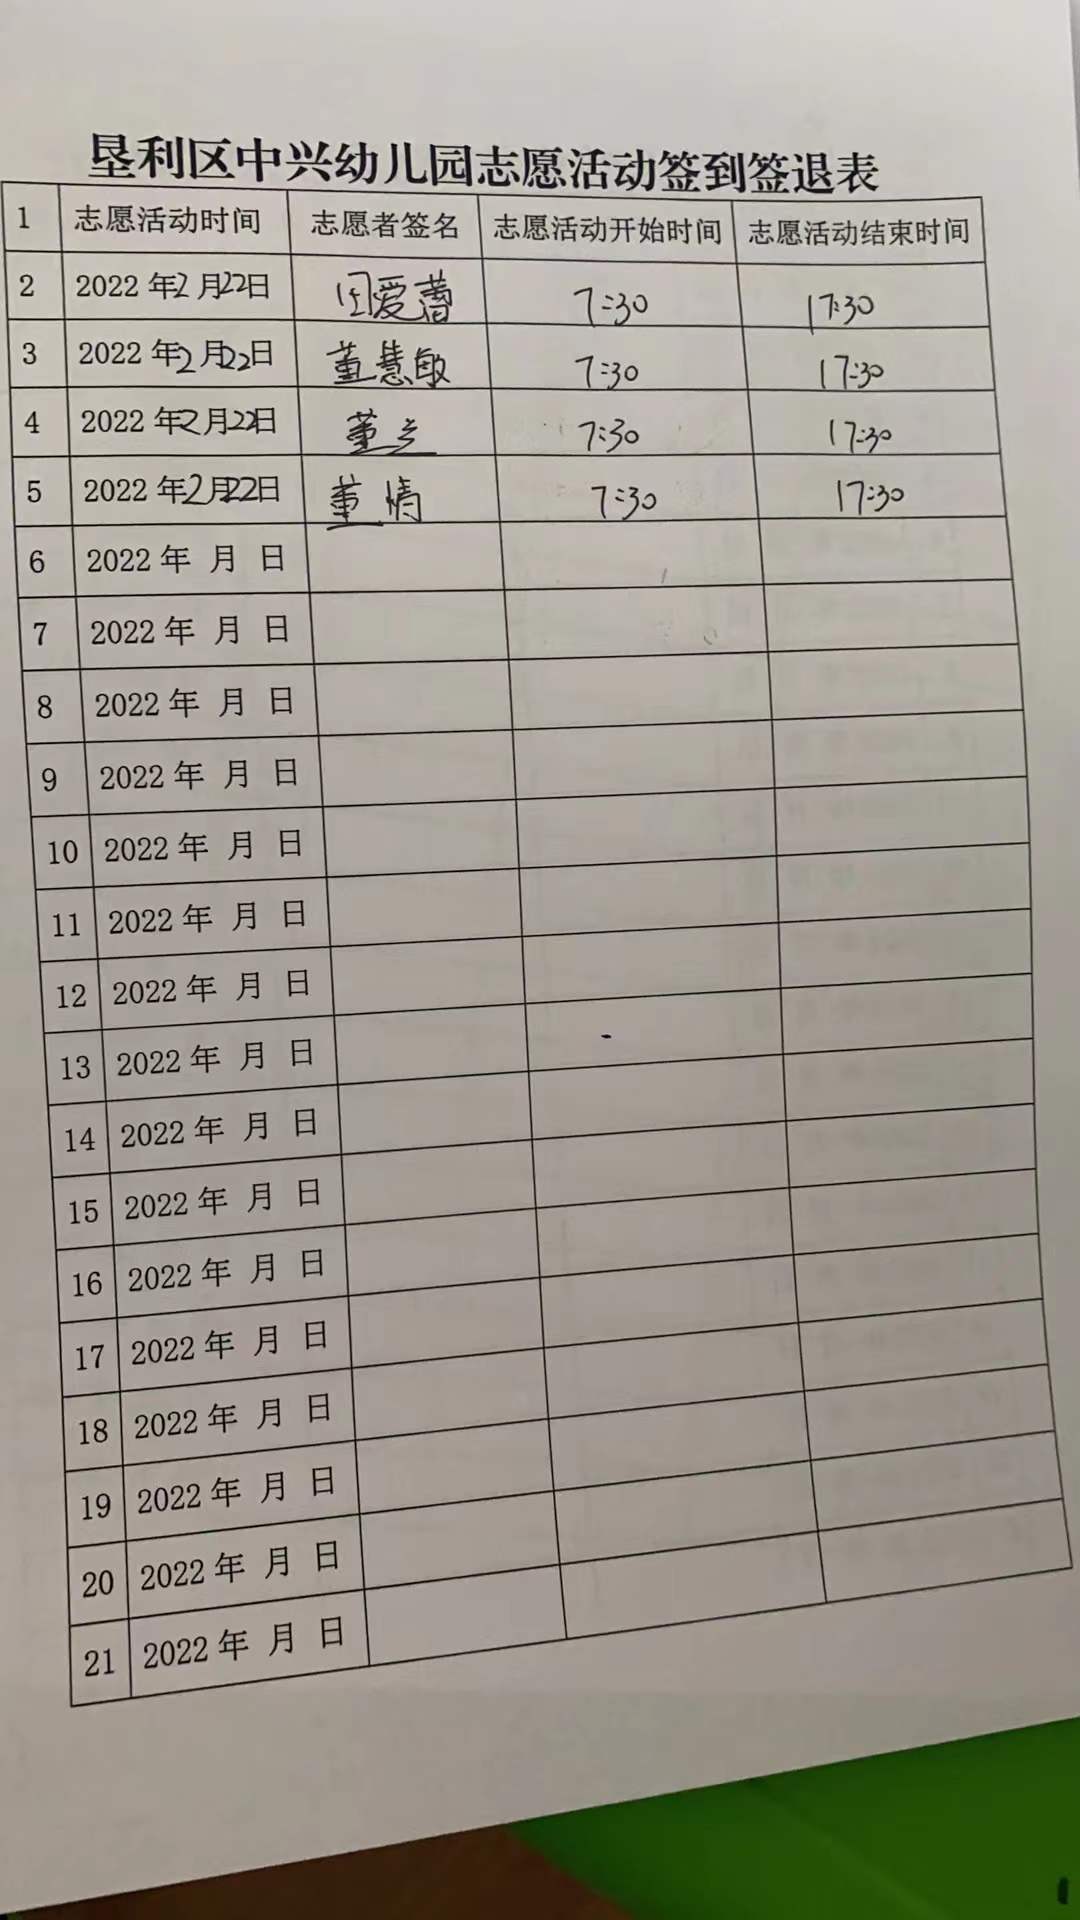 垦利区中兴幼儿园志愿活动签到签退表
1 志愿活动时间 志愿者签名 志愿活动开始时间 志愿活动结束时间
2 2022年2月22日 7:30 17:30
3 2022年2月22日 董慧敏 7:30 17:30
4 2022年2月22日 董 7:30 17:30
5 2022年2月22日 董情 7:30 17:30
6 2022年 月 日
7 2022年 月 日
8 2022年 月 日
9 2022年 月 日
10 2022年 月 日
11 2022年 月 日
12 2022年 月 日
13 2022年 月 日
14 2022年 月 日
15 2022年 月 日
16 2022年 月 日
17 2022年 月 日
18 2022年 月 日
19 2022年 月 日
20 2022年 月 日
21 2022年 月 日